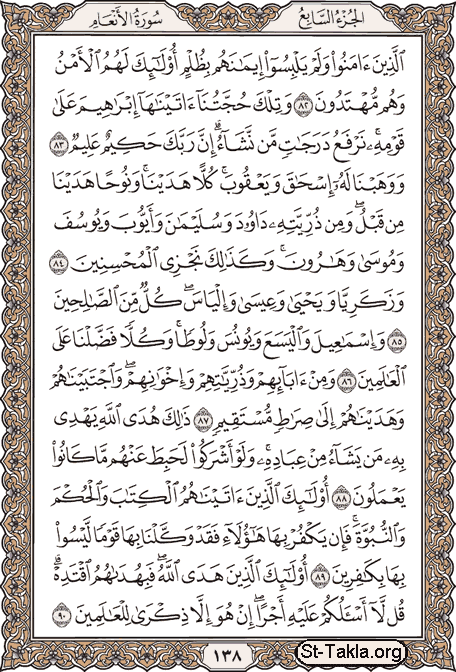 الجزء السابع سورة الأنعام
الَّذِينَ ءَامَنُوا۟ وَلَمْ يَلْبِسُوٓا۟ إِيمَـٰنَهُم بِظُلْمٍ أُو۟لَـٰٓئِكَ لَهُمُ ٱلْأَمْنُ
وَهُم مُّهْتَدُونَ ٨٢ وَتِلْكَ حُجَّتُنَآ ءَاتَيْنَـٰهَآ إِبْرَٰهِيمَ عَلَىٰ
قَوْمِهِۦ ۚ نَرْفَعُ دَرَجَـٰتٍ مَّن نَّشَآءُ ۗ إِنَّ رَبَّكَ حَكِيمٌ عَلِيمٌ ٨٣
وَوَهَبْنَا لَهُۥٓ إِسْحَـٰقَ وَيَعْقُوبَ ۚ كُلًّا هَدَيْنَا ۚ وَنُوحًا هَدَيْنَا
مِن قَبْلُ ۖ وَمِن ذُرِّيَّتِهِۦ دَاوُۥدَ وَسُلَيْمَـٰنَ وَأَيُّوبَ وَيُوسُفَ
وَمُوسَىٰ وَهَـٰرُونَ ۚ وَكَذَٰلِكَ نَجْزِى ٱلْمُحْسِنِينَ ٨٤
وَزَكَرِيَّا وَيَحْيَىٰ وَعِيسَىٰ وَإِلْيَاسَ ۖ كُلٌّ مِّنَ ٱلصَّـٰلِحِينَ
٨٥ وَإِسْمَـٰعِيلَ وَٱلْيَسَعَ وَيُونُسَ وَلُوطًا ۚ وَكُلًّا فَضَّلْنَا عَلَى
ٱلْعَـٰلَمِينَ ٨٦ وَمِنْ ءَابَآئِهِمْ وَذُرِّيَّـٰتِهِمْ وَإِخْوَٰنِهِمْ ۖ وَٱجْتَبَيْنَـٰهُمْ
وَهَدَيْنَـٰهُمْ إِلَىٰ صِرَٰطٍ مُّسْتَقِيمٍ ٨٧ ذَٰلِكَ هُدَى ٱللَّهِ يَهْدِى
بِهِۦ مَن يَشَآءُ مِنْ عِبَادِهِۦ ۚ وَلَوْ أَشْرَكُوا۟ لَحَبِطَ عَنْهُم مَّا كَانُوا۟
يَعْمَلُونَ ٨٨ أُو۟لَـٰٓئِكَ ٱلَّذِينَ ءَاتَيْنَـٰهُمُ ٱلْكِتَـٰبَ وَٱلْحُكْمَ
وَٱلنُّبُوَّةَ ۚ فَإِن يَكْفُرْ بِهَا هَـٰٓؤُلَآءِ فَقَدْ وَكَّلْنَا بِهَا قَوْمًا لَّيْسُوا۟
بِهَا بِكَـٰفِرِينَ ٨٩ أُو۟لَـٰٓئِكَ ٱلَّذِينَ هَدَى ٱللَّهُ ۖ فَبِهُدَىٰهُمُ ٱقْتَدِهْ ۗ
قُل لَّآ أَسْـَٔلُكُمْ عَلَيْهِ أَجْرًا ۖ إِنْ هُوَ إِلَّا ذِكْرَىٰ لِلْعَـٰلَمِينَ ٩٠
١٣٨
St-Takla.org